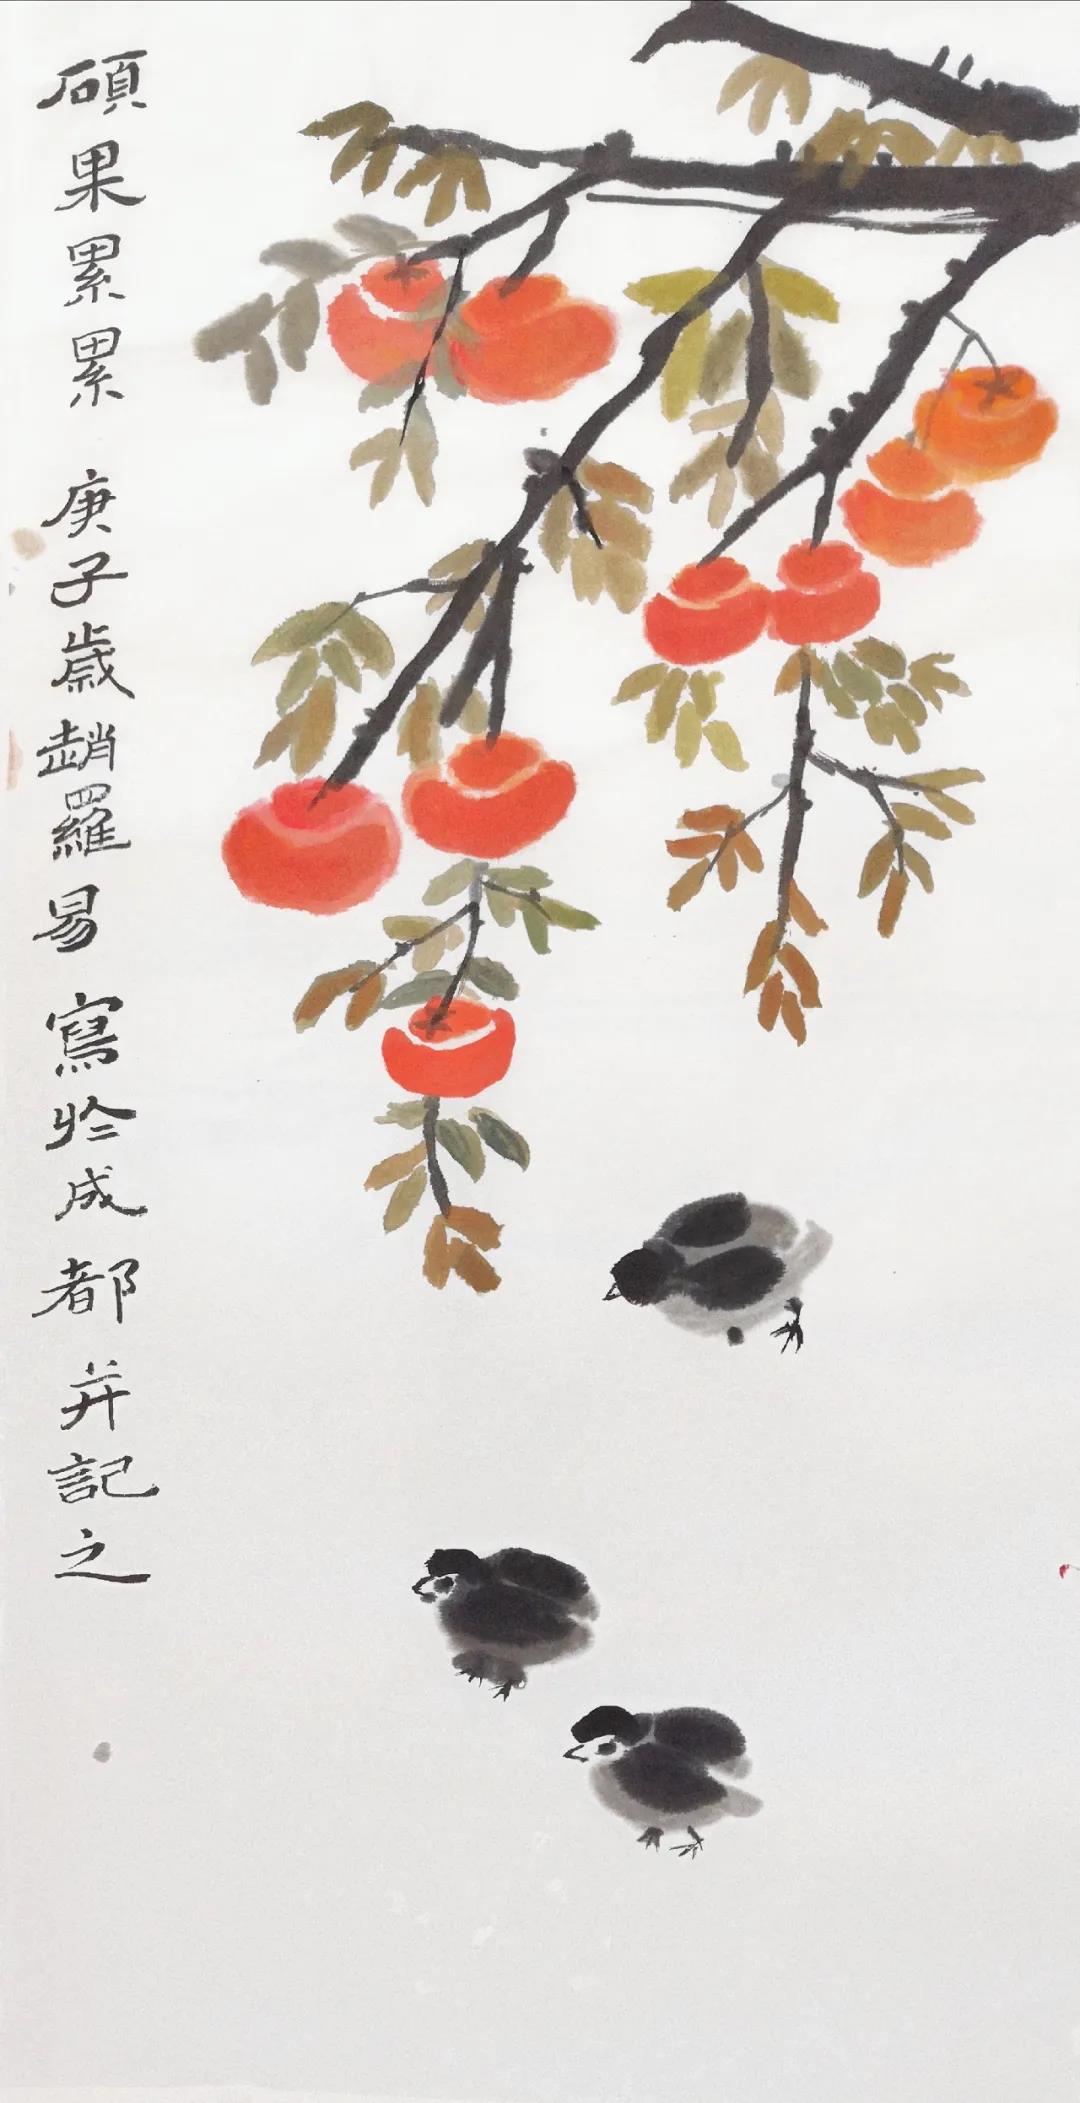 碩果累累 庚子歲趙羅易寫於成都并記之